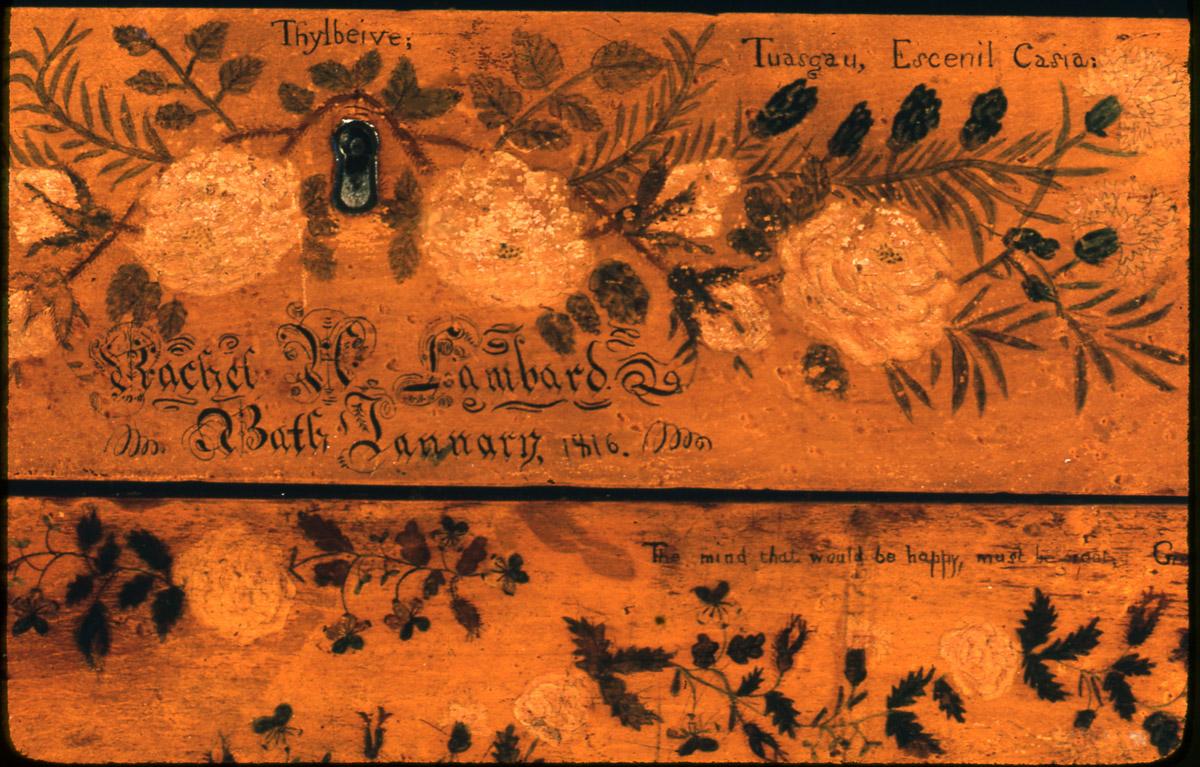 Thylbeive;
Tuasgau, Escenil Casia:
Rachel H Lombard.
Bath January, 1816.
The mind that would be happy, must be great,